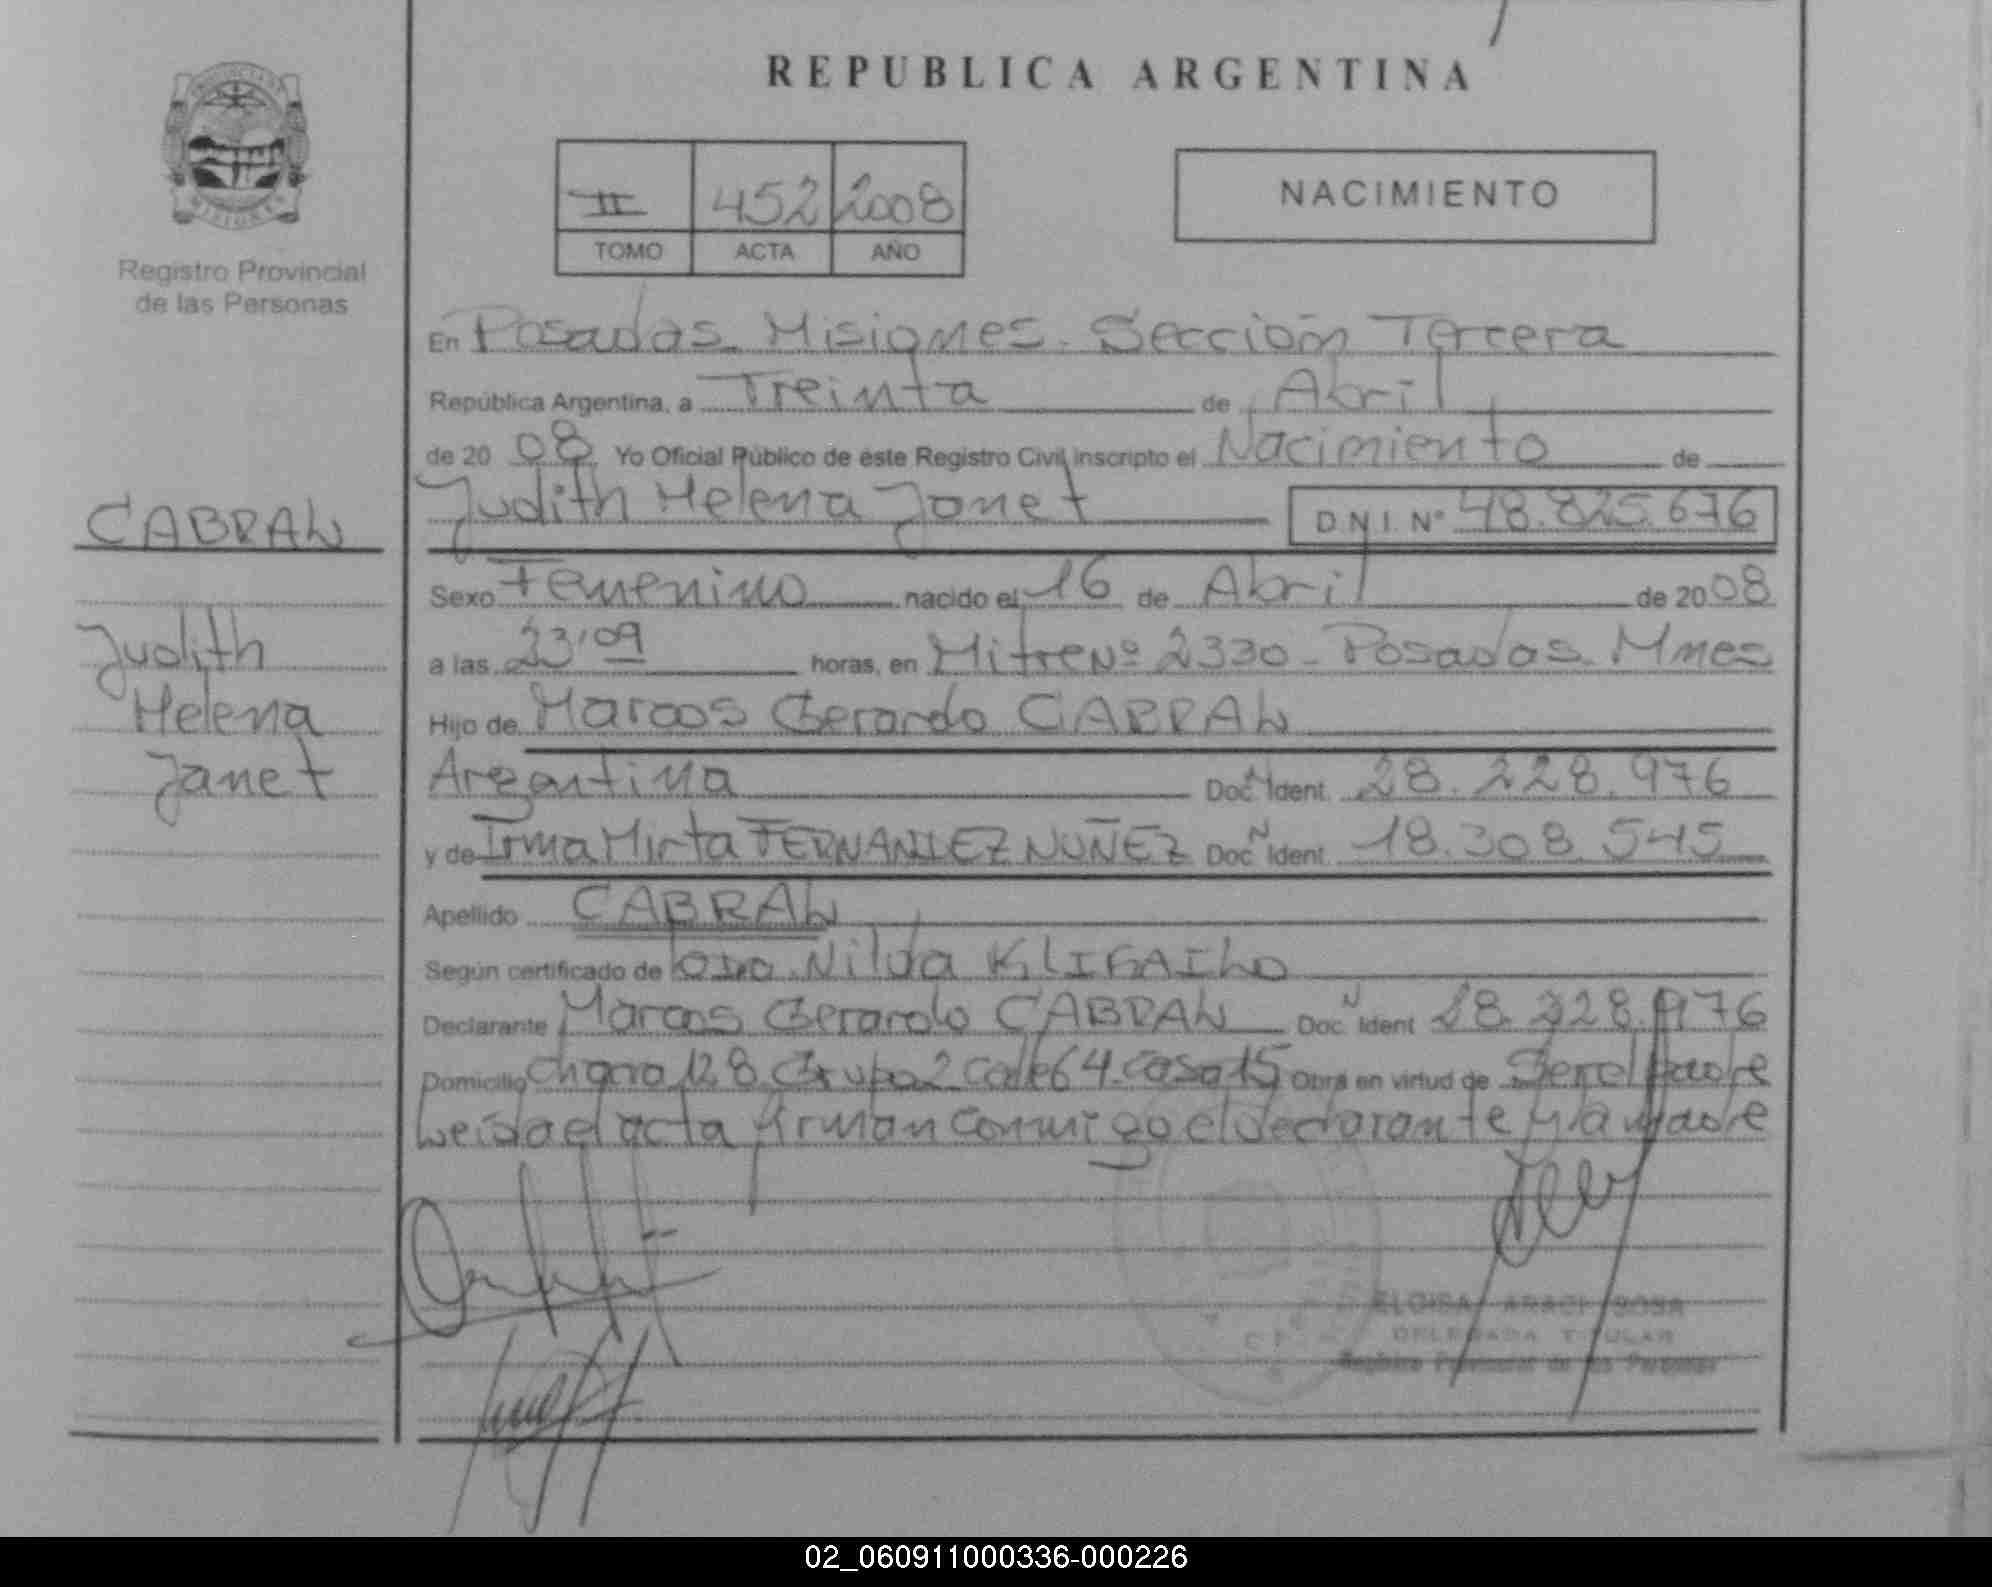 REPUBLICA ARGENTINA
PROVINCIA DE
MISIONES
Registro Provincial
de las Personas
II 452 2008
TOMO ACTA AÑO
NACIMIENTO
En Posadas Misiones. Sección Tercera
República Argentina, a Treinta de Abril
de 20 08 Yo Oficial Público de éste Registro Civil, inscripto el Nacimiento de
Judith Helena Janet D.N.I. Nº 48.825.676
CABRAL
Judith
Helena
Janet
Sexo Femenino nacido el 16 de Abril de 20 08
a las 23'09 horas, en Mitre Nº 2330 - Posadas. Mnes
Hijo de Marcos Gerardo CABRAL
Argentina Doc. N Ident. 28.228.976
y de Irma Mirta FERNANDEZ NUÑEZ Doc. N Ident. 18.308.545
Apellido CABRAL
Según certificado de Nilda
Declarante Marcos Gerardo CABRAL Doc. N Ident 28.228.976
Domicilio Chacra 128. Grupo 2 Calle 64. Casa 15 Obra en virtud de Ser el padre
Leida el acta firman conmigo el declarante y la madre
ELOISA ARACI SOSA
DELEGADA TITULAR
Registro Provincial de las Personas
02_060911000336-000226